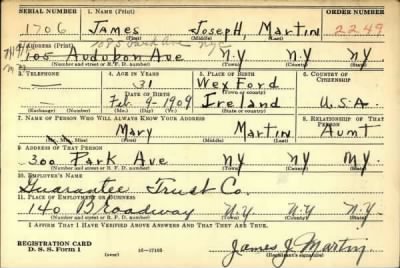 SERIAL NUMBER 1. NAME (Print) ORDER NUMBER
1706 James Joseph, Martin 2249
(First) (Middle) (Last)
1085 Park Ave NYC
2. ADDRESS (Print)
105 Audubon Ave N.Y N.Y N.Y
(Number and street or R. F. D. number) (Town) (County) (State)
3. TELEPHONE 4. AGE IN YEARS 5. PLACE OF BIRTH 6. COUNTRY OF CITIZENSHIP
— 31 Wexford
DATE OF BIRTH (Town or county)
— Feb. 9-1909 Ireland U.S.A
(Exchange) (Number) (Mo.) (Day) (Yr.) (State or country)
7. NAME OF PERSON WHO WILL ALWAYS KNOW YOUR ADDRESS 8. RELATIONSHIP OF THAT PERSON
Mary Martin Aunt
(Mr., Mrs., Miss) (First) (Middle) (Last)
9. ADDRESS OF THAT PERSON
300 Park Ave N.Y N.Y N.Y.
(Number and street or R. F. D. number) (Town) (County) (State)
10. EMPLOYER'S NAME
Guarantee Trust Co.
11. PLACE OF EMPLOYMENT OR BUSINESS
140 Broadway N.Y. N.Y. N.Y.
(Number and street or R. F. D. number) (Town) (County) (State)
I AFFIRM THAT I HAVE VERIFIED ABOVE ANSWERS AND THAT THEY ARE TRUE.
REGISTRATION CARD
D. S. S. Form 1 16—17105 (over) James J. Martin
(Registrant's signature)